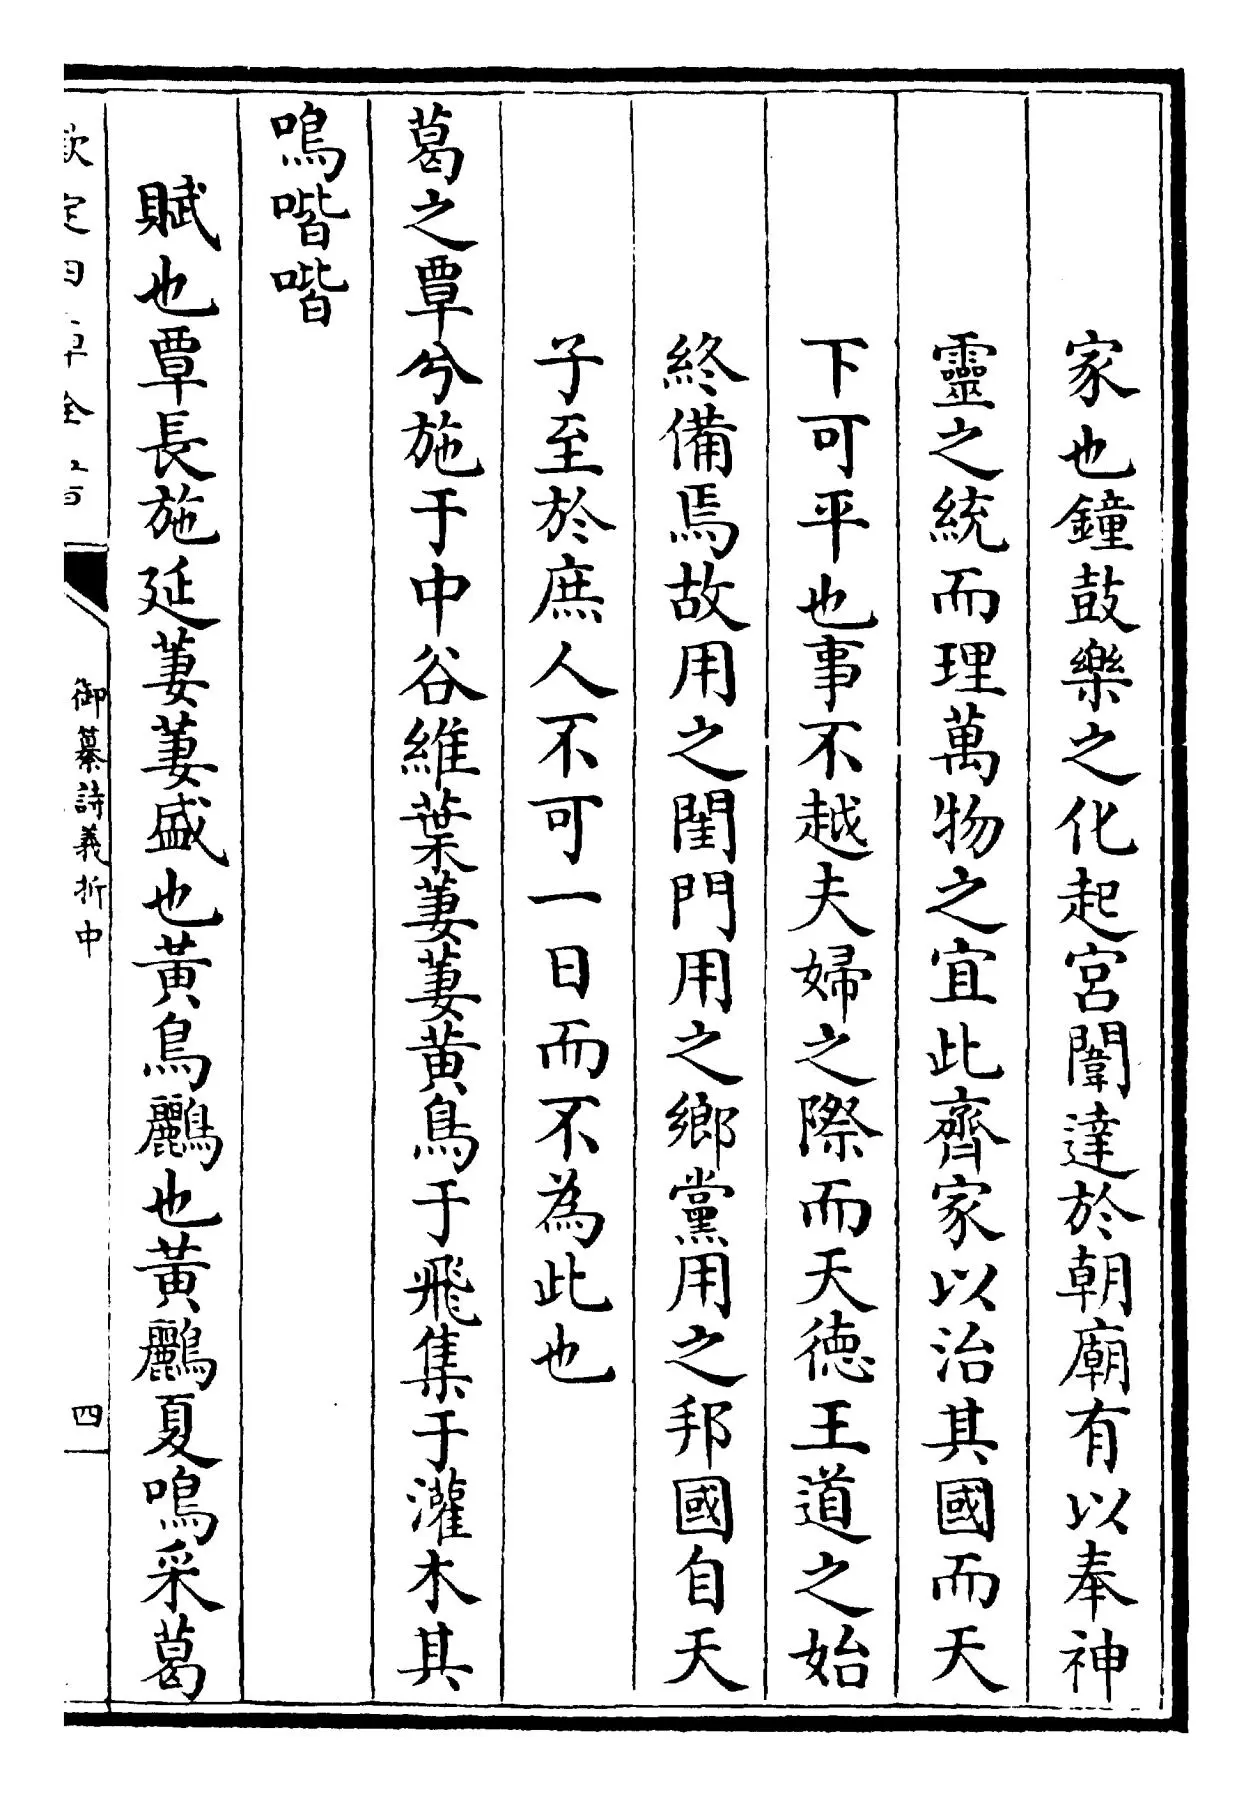 家也鐘鼓樂之化起宮闈達於朝廟有以奉神
靈之統而理萬物之宜此齊家以治其國而天
下可平也事不越夫婦之際而天德王道之始
終備焉故用之閨門用之鄉黨用之邦國自天
子至於庶人不可一日而不為此也
葛之覃兮施于中谷維葉萋萋黃鳥于飛集于灌木其
鳴喈喈
賦也覃長施延萋萋盛也黃鳥鸝也黃鸝夏鳴采葛
欽定四庫全書
御纂詩義折中
四